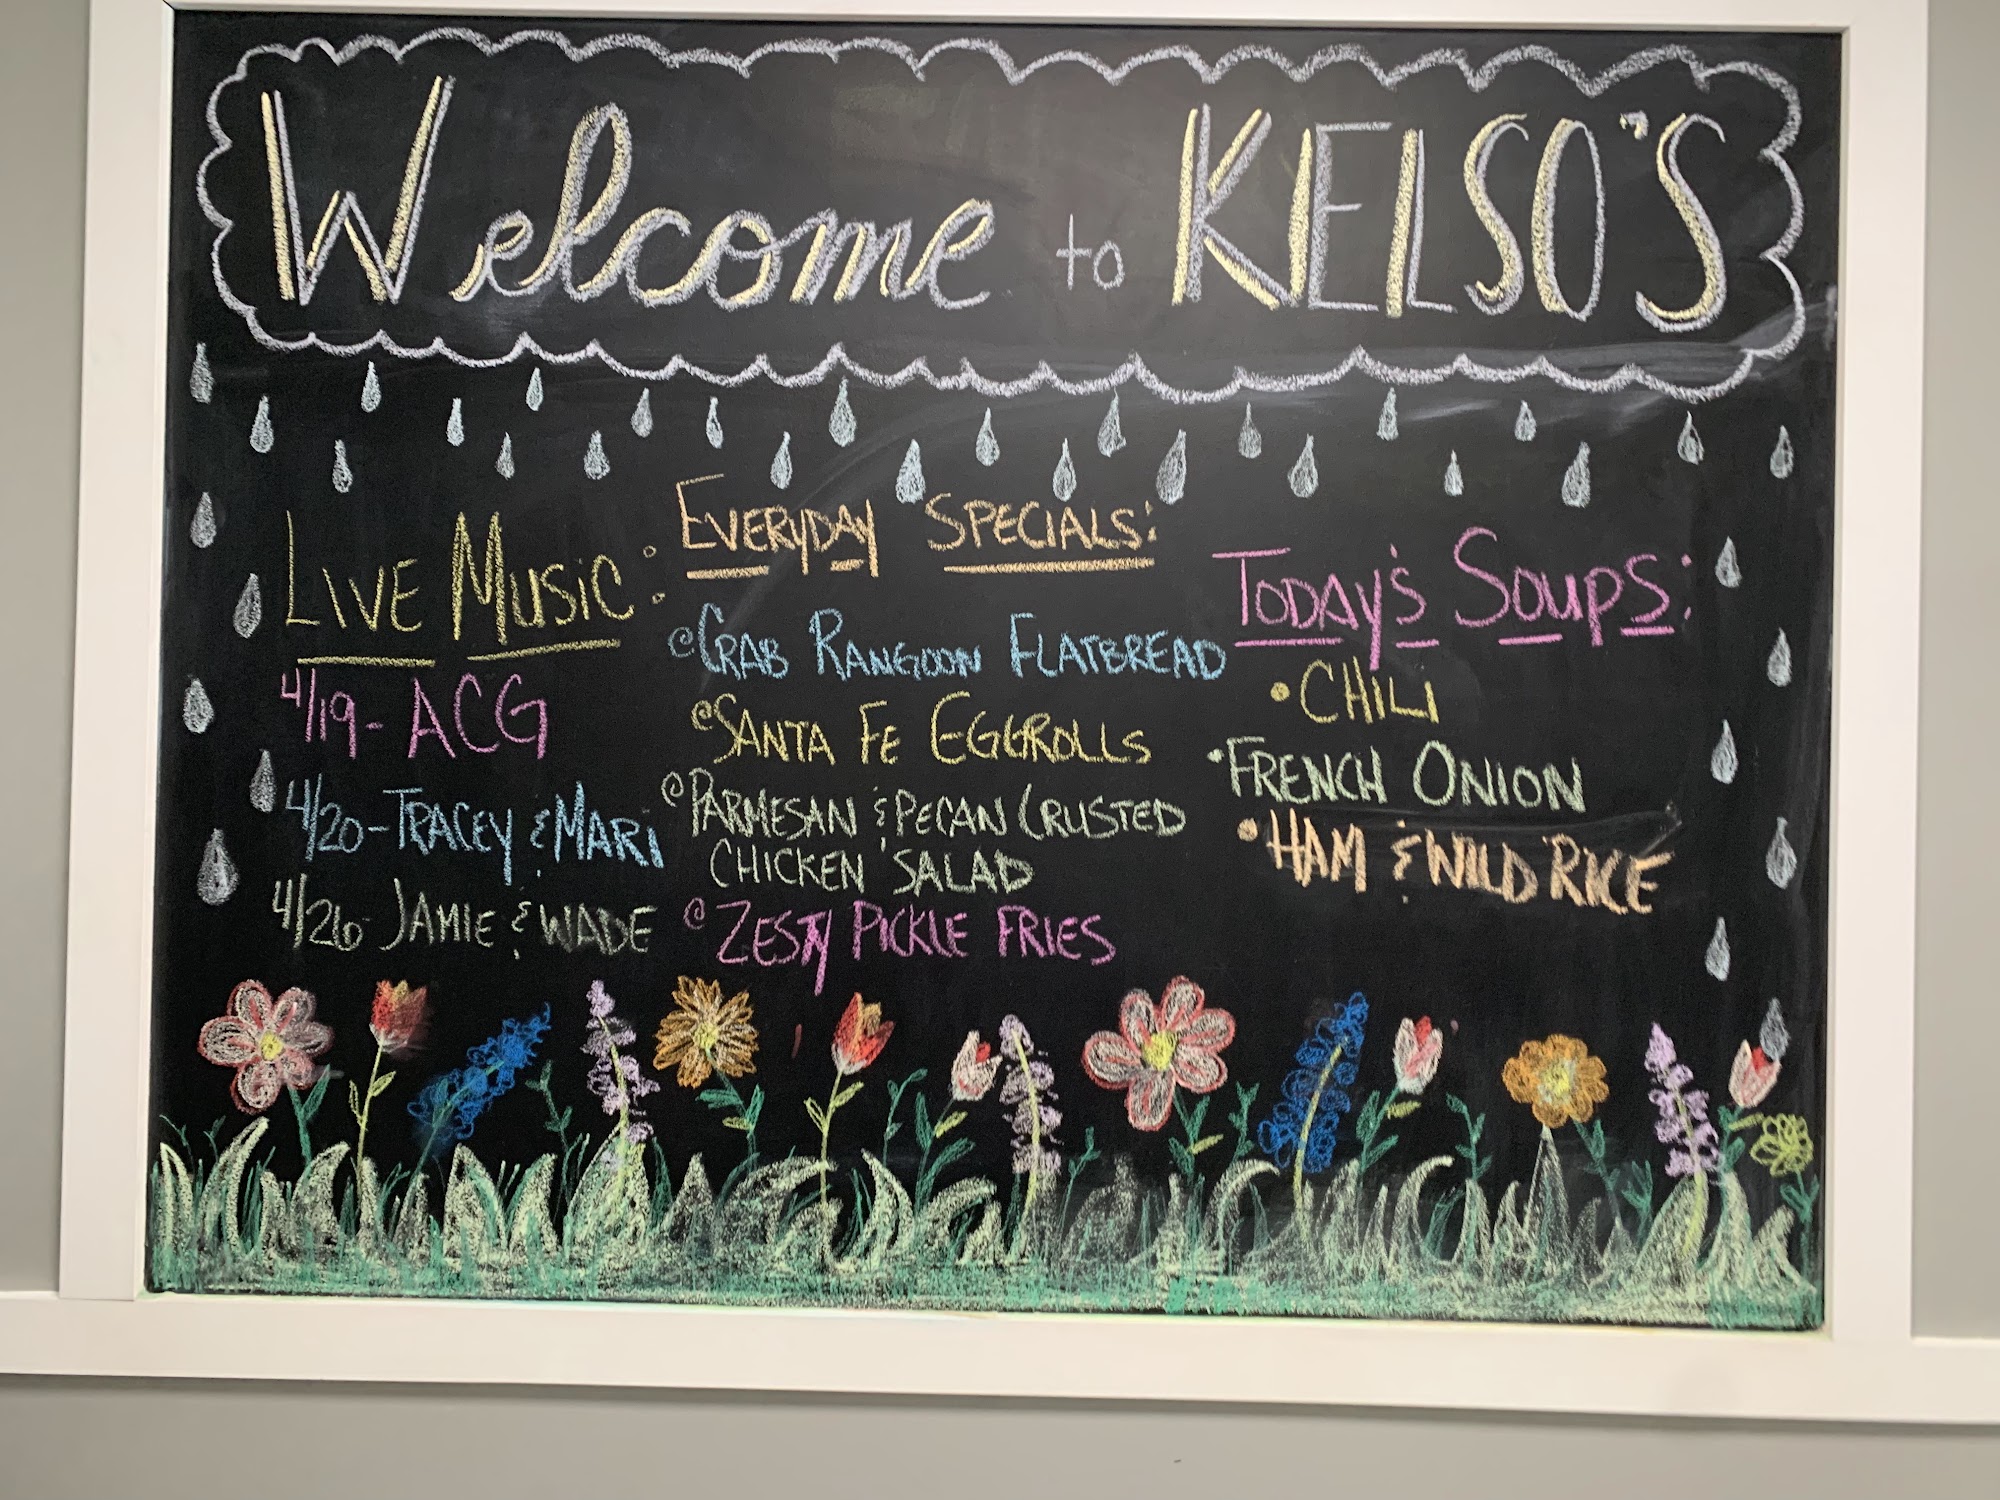 Welcome to KELSO'S
LIVE MUSIC:
4/19- ACG
4/20-TRACEY & MARI
4/26- JAMIE & WADE
EVERYDAY SPECIALS:
CRAB RANGOON FLATBREAD
SANTA FE EGGROLLS
PARMESAN & PECAN CRUSTED
CHICKEN SALAD
ZESTY PICKLE FRIES
TODAY'S SOUPS:
• CHILI
• FRENCH ONION
• HAM & WILD RICE